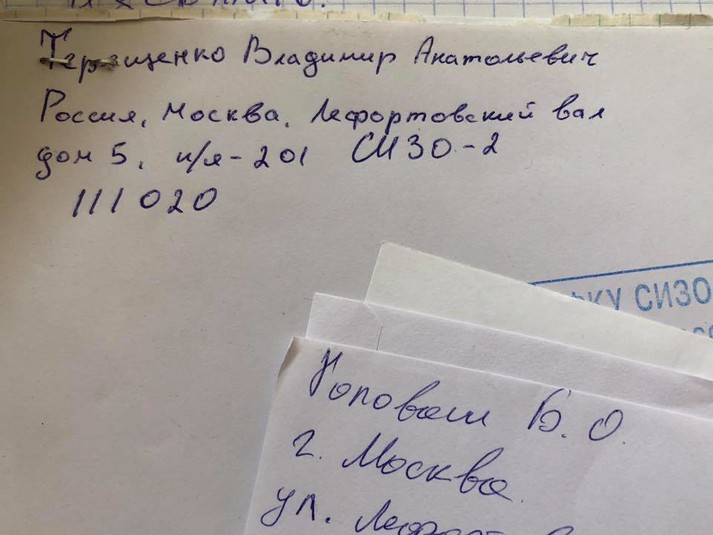 Терещенко Владимир Анатольевич
Россия, Москва, Лефортовский вал
дом 5, п/я-201 СИЗО-2
111020
СИЗО
Б. О.
г. Москва
ул.